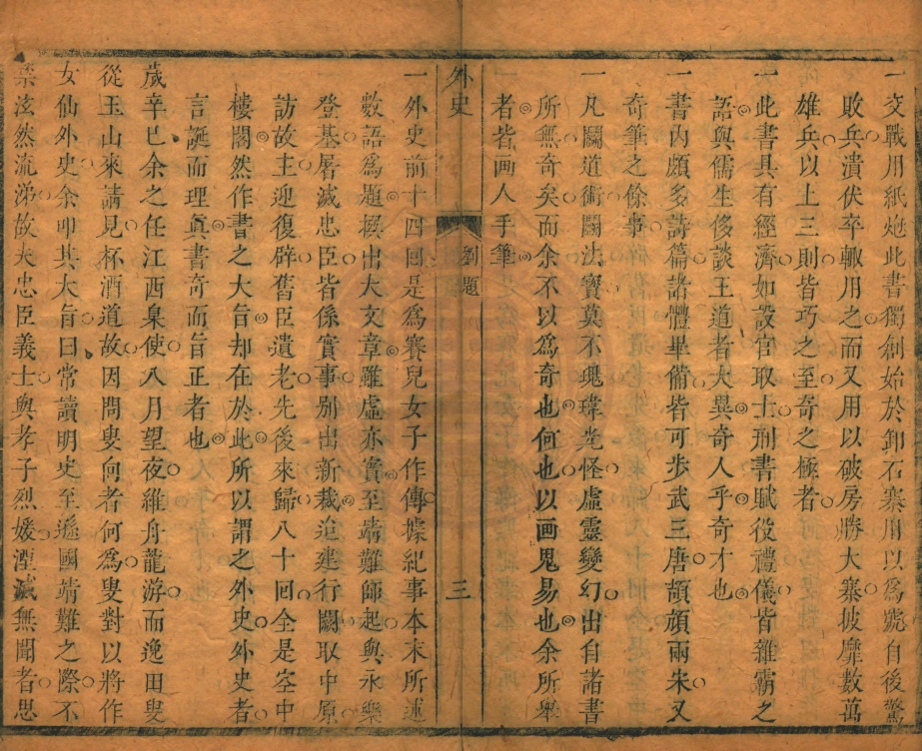 一交戰用紙炮此書獨創始於卸石寨用以為號自後驚
敗兵潰伏卒輙用之而又用以破房勝大寨披靡數萬
雄兵以上三則皆巧之至奇之極者
一此書具有經濟如設官取士刑書賦役禮儀皆雜霸之
語與儒生侈談王道者大異奇人乎奇才也
一書內頗多詩篇諸體畢備皆可步武三唐頡頏兩宋又
奇筆之餘事
一凡鬭道術鬭法寶莫不瑰瑋光怪虛靈變幻出自諸書
所無奇矣而余不以為奇也何也以画鬼易也余所舉
者皆画人手筆
外史
劉題
三
一外史前十四回是為賽兒女子作傳據紀事本末所述
數語為題撰出大文章雖虛亦實至靖難師起與永樂
登基屠滅忠臣皆係實事别出新裁追建行闕取中原
訪故主迎復辟舊臣遺老先後來歸八十回全是空中
樓閣然作書之大旨却在於此所以謂之外史外史者
言誕而理眞書奇而旨正者也
歲辛巳余之任江西臬使八月望夜維舟龍游而逸田叟
從玉山來請見杯酒道故因問叟向者何為叟對以將作
女仙外史余叩其大旨曰常讀明史至遜國靖難之際不
禁泫然流涕故夫忠臣義士與孝子烈媛湮滅無聞者思